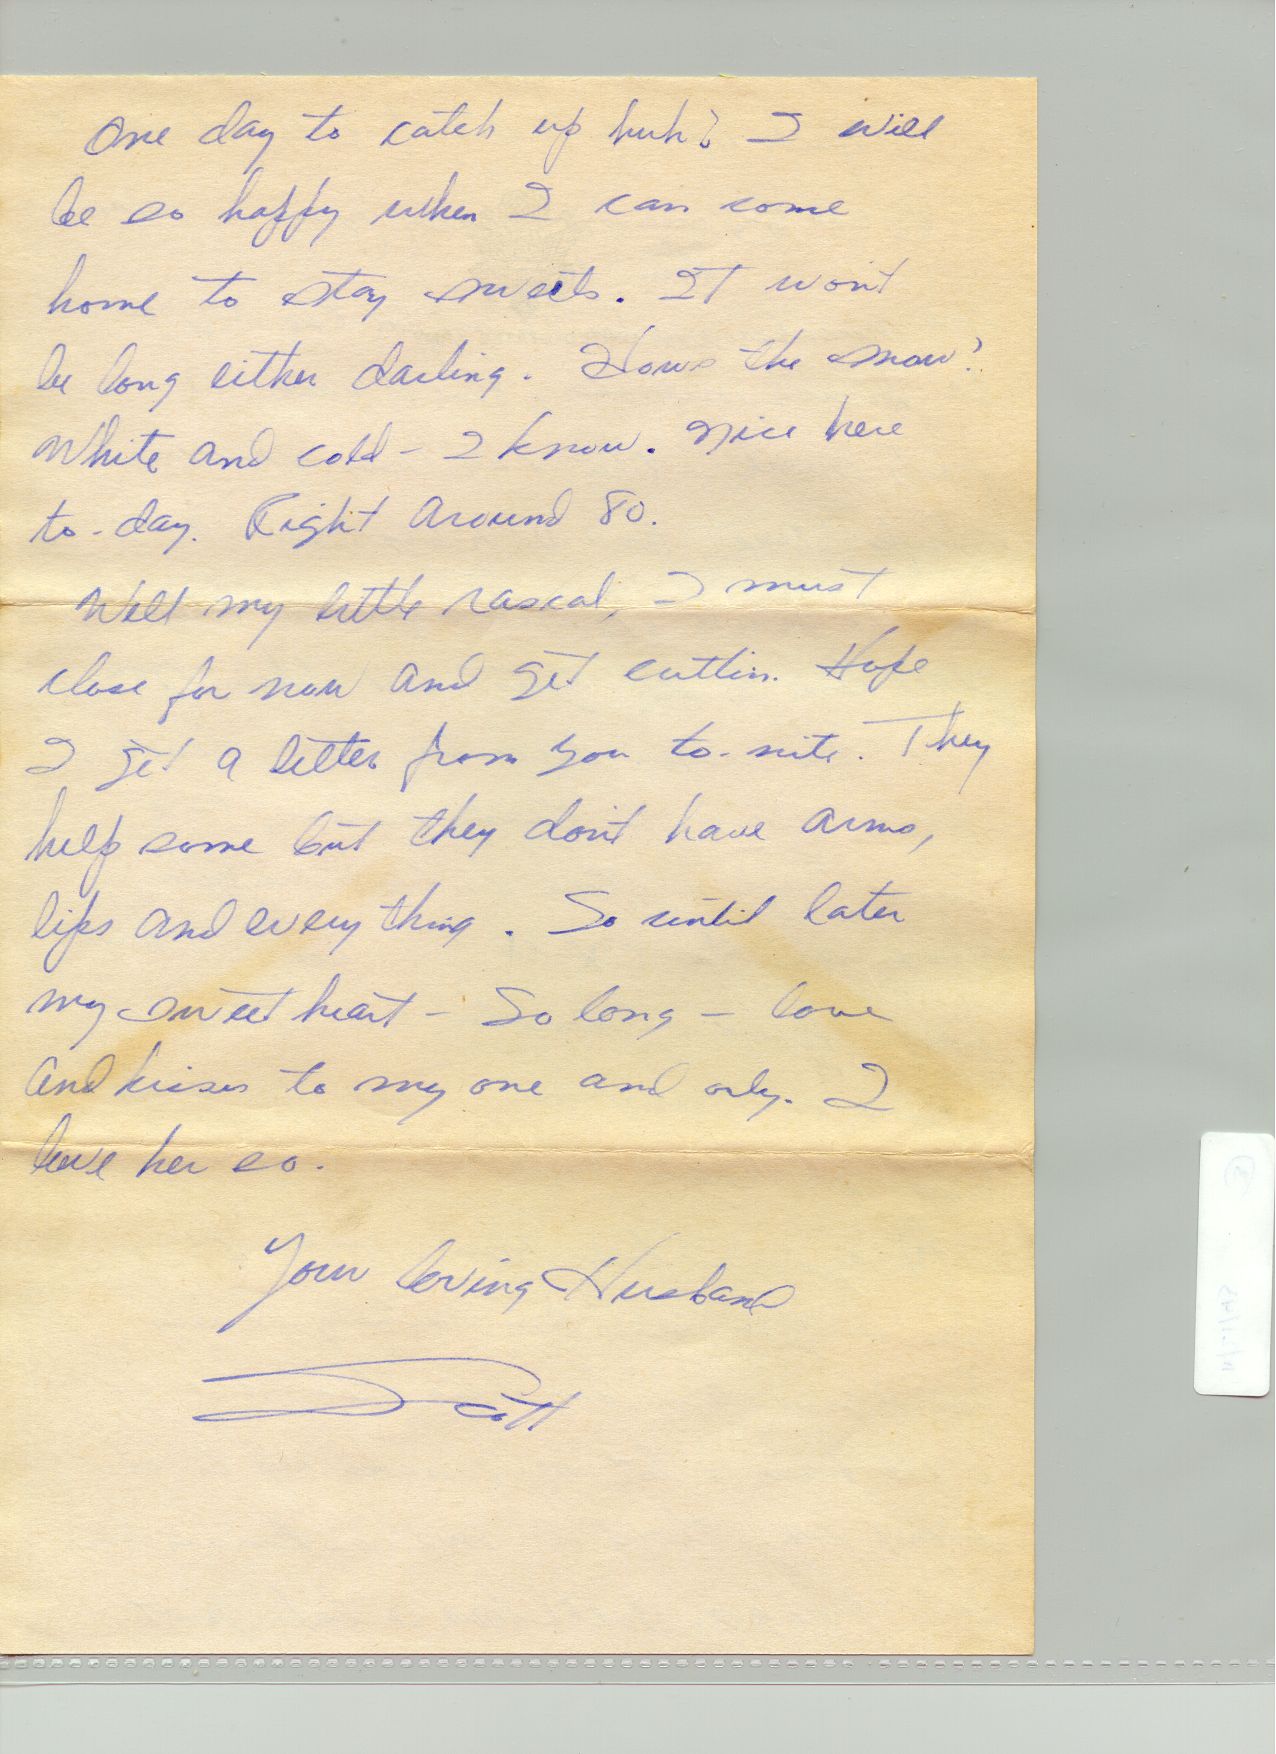 One day to catch up huh? I will
be so happy when I can come
home to stay sweets. It won't
be long either darling. Hows the snow?
White and cold - I know. Nice here
to-day. Right around 80.
Well my little rascal, I must
close for now and get cuttin. Hope
I get a letter from you to-nite. They
help some but they don't have arms,
lips and everything. So until later
my sweetheart - So long - love
and kisses to my one and only. I
love her so.
Your loving Husband
Scott
3